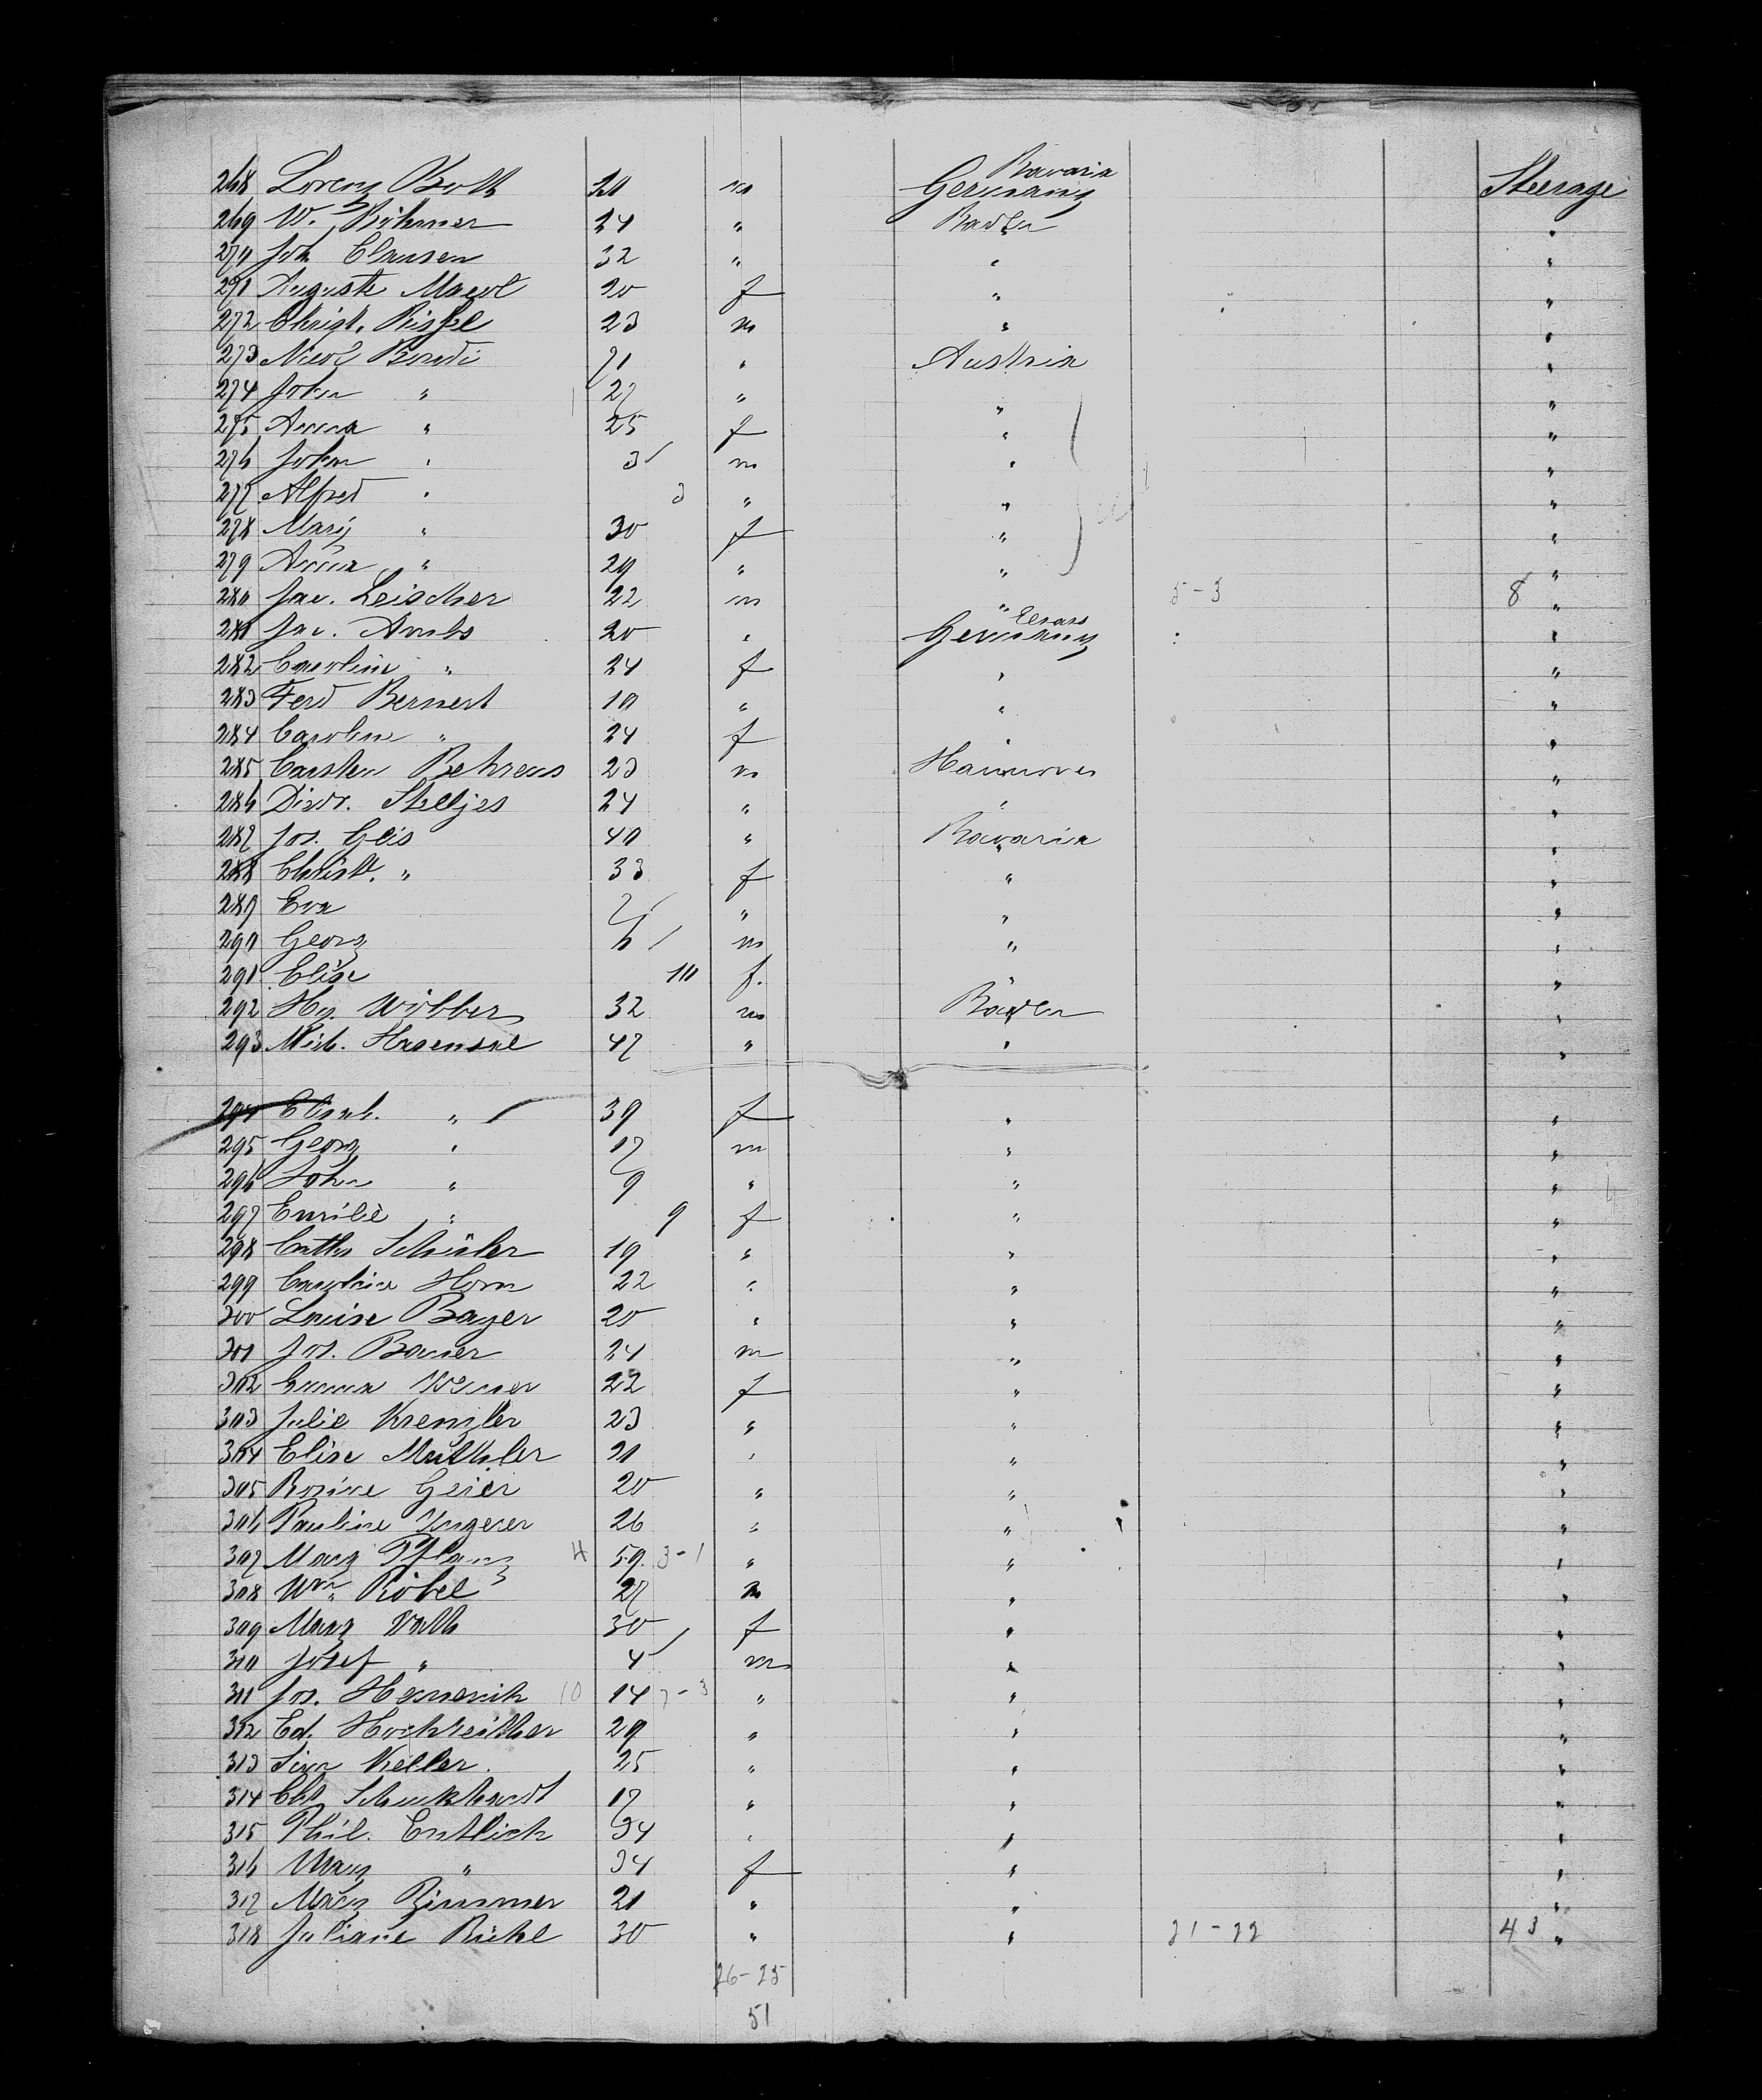 268 Lorenz Both 20 m Germany Bavaria Steerage
269 W. Böhmer 24 " Baden "
270 Joh Clausen 32 " " "
271 Auguste 20 f " "
272 Christ. 23 m " "
273 Bondi 71 " Austria "
274 John " 27 " " "
275 Anna " 25 f " "
276 John " 3 m " "
277 Alfred " 3 " " "
278 Mary " 30 f " "
279 Anna " 29 " " "
280 Jac. Leischer 22 m " 5-3 8 "
281 Jac. Ambs 20 " Germany Elsass "
282 Caroline " 24 f " "
283 Ferd Bernert 19 " " "
284 Carolin " 24 f " "
285 Carsten Behrens 23 m Hannover "
286 Diedr. Stelljes 24 " " "
287 Jos. Geis 40 " Bavaria "
288 Christ. " 33 f " "
289 Eva 7 " " "
290 Georg 6 m " "
291 Elise 10 f. " "
292 Hy. Wöbber 32 m Baden "
293 Mich. 47 " " "
294 Elisab. " 39 f " "
295 Georg " 17 m " "
296 John " 9 " " "
297 Emilie " 9 f " "
298 Cath. Schüler 19 " " "
299 Caroline Horn 22 " " "
300 Louise Bayer 20 " " "
301 Jos. Bauer 24 m " "
302 Emma 22 f " "
303 Julie Krenzler 23 " " "
304 Elise 21 " " "
305 Rosine Geier 20 " " "
306 Pauline Ungerer 26 " " "
307 Marg Pflanz 4 59 3-1 " " "
308 Wm. Röbel 27 m " "
309 Marg 30 f " "
310 Josef " 4 m " "
311 Jos. 10 14 7-3 " " "
312 Ed. Hochreither 29 " " "
313 Keller. 25 " " "
314 Schuckhardt 17 " " "
315 Phil. Entlich 34 " " "
316 Marg " 34 f " "
317 Marg Zimmer 21 " " "
318 Juliane Riehl 30 " " 21-22 43 "
26-25
51